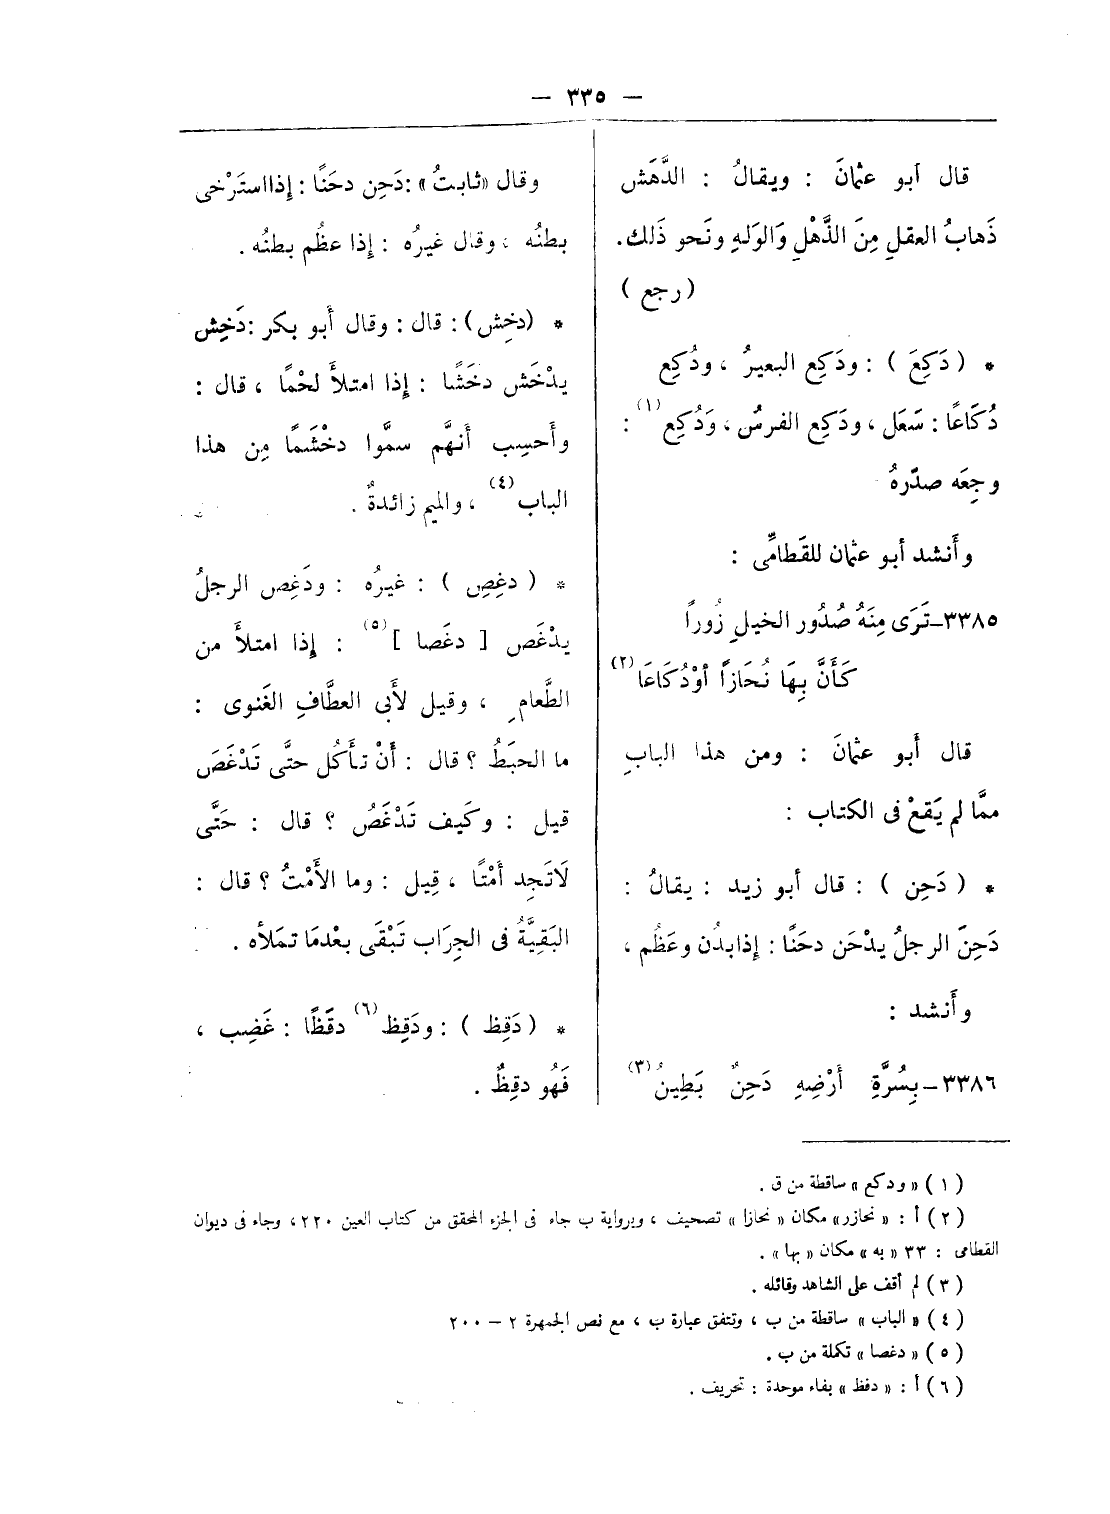 — ٣٣٥ —
قال أبو عثمانَ : ويقالُ : الدَّهَش
ذَهابُ العقلِ مِنَ الذَّهْلِ وَالوَلهِ ونَحو ذَلك.
( رجع )
* ( دَكِعَ ) : ودَكِع البعيرُ ، ودُكِع
دُكَاعًا : سَعَل ، ودَكِع الفرسُ ، وَدُكِع (١) :
وجِعَه صدْرهُ
وأَنشد أبو عثمان للقَطامِّى :
٣٣٨٥ـ تَرَى مِنَهُ صُدُور الخيلِ زُوراً
كَأَنَّ بِهَا نُحَازاً أوْدُكَاعَا (٢)
قال أَبو عثمانَ : ومن هذا البابِ
ممَّا لم يَقعْ فى الكتاب :
* ( دَحِن ) : قال أبو زيد : يقالُ :
دَحِنَ الرجلُ يدْحَن دحَنًا : إذابدُن وعَظُم ،
وأَنشد :
٣٣٨٦ـ بِسُرَّةِ أَرْضِهِ دَحِنٌ بَطِينُ (٣)
وقال «ثابتُ» : دَحِن دحَنًا : إِذااستَرْخى
بطنُه ، وقال غيرُه : إذا عظُم بطنُه .
* (دخِش) : قال : وقال أَبو بكر : دَخِش
يدْخَش دخَشًا : إِذا امتلأَ لحْمًا ، قال :
وأَحسِب أَنهَّم سمَّوا دخْشَمًا مِن هذا
الباب (٤) ، والميم زائدةٌ .
* ( دغِصِ ) : غيرُه : ودَغِص الرجلُ
يدْغَص [ دغَصا ] (٥) : إِذا امتلأَ من
الطَّعامِ ، وقيل لأَبى العطَّافِ الغَنوى :
ما الحبَطُ ؟ قال : أَنْ تأَكُل حتَّى تَدْغَصَ
قيل : وكَيف تَدْغَصُ ؟ قال : حَتَّى
لَاتَجِد أَمْتًا ، قِيل : وما الأَمْتُ ؟ قال :
البَقِيَّةُ فى الجِرَاب تَبْقَى بعْدمَا تملأه .
* ( دَقِظ ) : ودَقِظ (٦) دقَظًا : غَضِب ،
فَهُو دقِظٌ .
( ١ ) « ودكع » ساقطة من ق .
( ٢ ) أ : « نحازر» مكان « نحازا » تصحيف ، وبرواية ب جاء فى الجزء المحقق من كتاب العين ٢٢٠ ، وجاء فى ديوان
القطامى : ٣٣ « به » مكان « بها » .
( ٣ ) لم أقف على الشاهد وقائله .
( ٤ ) « الباب » ساقطة من ب ، وتتفق عبارة ب ، مع نص الجمهرة ٢ – ٢٠٠
( ٥ ) « دغصا » تكملة من ب .
( ٦ ) أ : « دفظ » بفاء موحدة : تحريف .